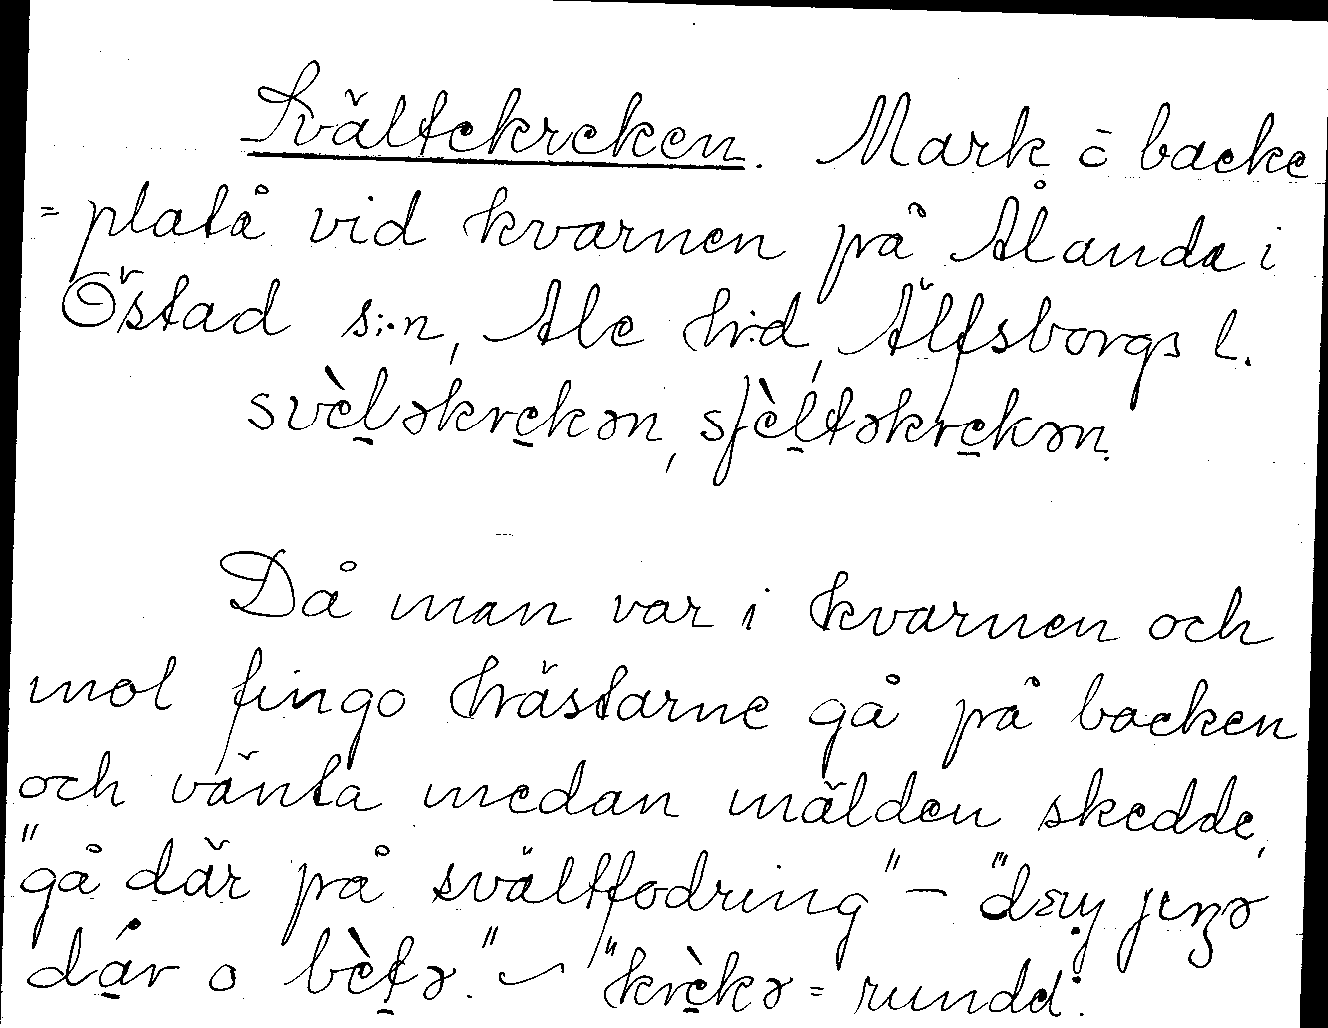 Svältekreken. Mark o backe
= platå vid kvarnen på Ålanda i
Östad s:n, Ale h:d, Älfsborgs l.
svèl̠əkre̠kən, sfèl̠təkre̠kən.
Då man var i kvarnen och
mol fingo hästarne gå på backen
och vänta medan mälden skedde,
"gå där på svältfodring" – "
där o bètə." – "krèkə = rundd.